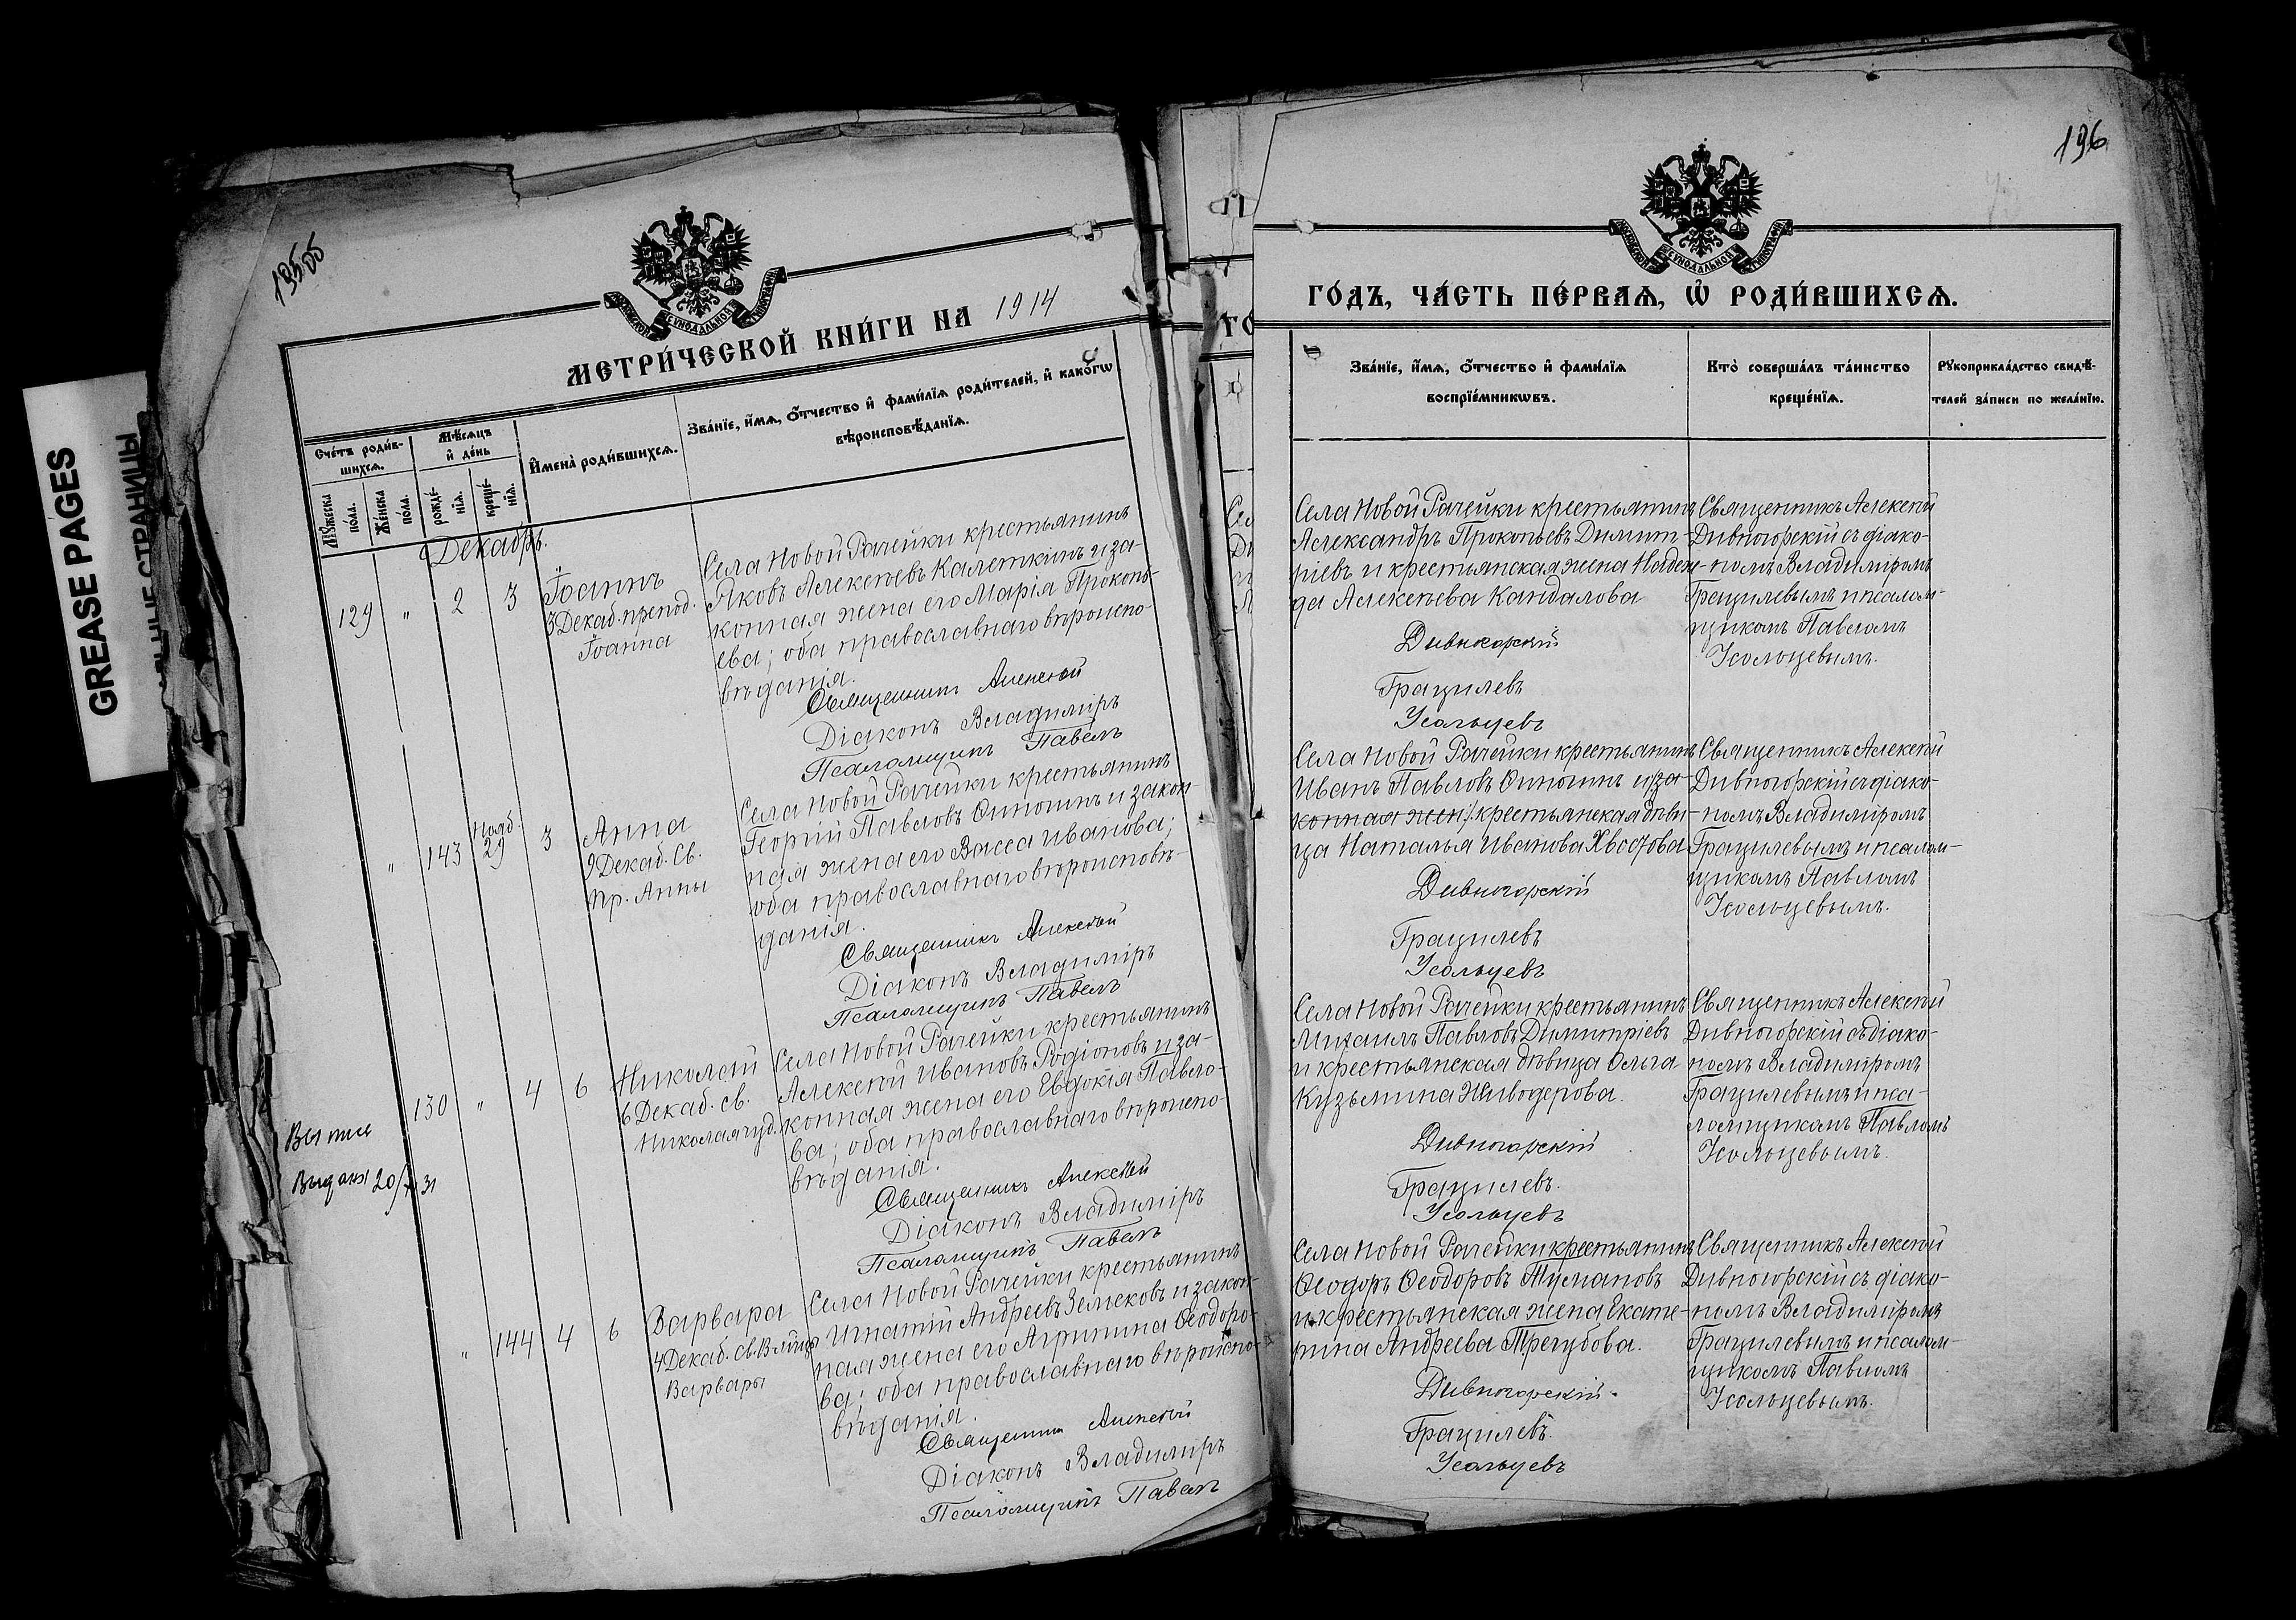 GREASE PAGES
СТРАНИЦЫ
МОСКОВСКОЙ СѴНОДАЛЬНОЙ ТИПОГРАФІИ
МЕТРИ́ЧЕСКОЙ КНИ́ГИ НА 1914
Сче́тъ роди́в-
шихсѧ.
Мѣ́сѧцъ
и҆ де́нь
И҆мена̀ роди́вшихсѧ.
Зва́нїе, и҆́мѧ, ѻ҆́тчество и҆ фами́лїѧ роди́телей, и҆ како́гѡ
вѣроисповѣ́данїѧ.
Мꙋ́жеска
по́ла.
Же́нска
по́ла.
рожде́-
нїѧ.
креще́-
нїѧ.
Декабрь.
129 " 2 3
Іоаннъ
3 Декаб. препод.
Іоанна
Села Новой Рачейки крестьянинъ
Яковъ Алексѣевъ Калеткинъ и за-
конная жена его Марія Прокопь-
ева; оба православнаго вѣроиспо-
вѣданія.
Священникъ Алексѣй
Діаконъ Владиміръ
Псаломщикъ Павелъ
" 143 Нояб. 29 3
Анна
9 Декаб. Св.
пр. Анны
Села Новой Рачейки крестьянинъ
Георгій Павловъ Синошнъ и закон-
ная жена его Васса Иванова;
оба православнаго вѣроисповѣ-
данія.
Священникъ Алексѣй
Діаконъ Владиміръ
Псаломщикъ Павелъ
Выпись
Выдана 20/ 31
130 " 4 6
Николай
6 Декаб. св.
Николая чуд.
Села Новой Рачейки крестьянинъ
Алексѣй Ивановъ Родіоновъ и за-
конная жена его Евдокія Павло-
ва; оба православнаго вѣроиспо-
вѣданія.
Священникъ Алексѣй
Діаконъ Владиміръ
Псаломщикъ Павелъ
" 144 4 6
Варвара
4 Декаб. св. Влмуч
Варвары
Села Новой Рачейки крестьянинъ
Игнатій Андреевъ Земсковъ и закон-
ная жена его Агрипина Ѳеодоро-
ва; оба православнаго вѣроиспо-
вѣданія.
Священникъ Алексѣй
Діаконъ Владиміръ
Псаломщикъ Павелъ
196
МОСКОВСКОЙ СѴНОДАЛЬНОЙ ТИПОГРАФІИ
ГО́ДЪ, ЧА́СТЬ ПЕ́РВАѦ, Ѽ РОДИ́ВШИХСѦ.
Зва́нїе, и҆́мѧ, ѻ҆́тчество и҆ фами́лїѧ
воспрїе́мникѡвъ.
Кто̀ соверша́лъ та́инство
креще́нїѧ.
Рꙋкоприкла́дство свидѣ́-
телей за́писи по жела́нїю.
Села Новой Рачейки крестьянинъ
Александръ Прокопьевъ Димит-
ріевъ и крестьянская жена Надеж-
да Алексѣева Кандалова
Дивногорскій
Грацилевъ
Усольцевъ
Священникъ Алексѣй
Дивногорскій съ діако-
номъ Владиміромъ
Грацилевымъ и псалом-
щикомъ Павломъ
Усольцевымъ.
Села Новой Рачейки крестьянинъ
Иванъ Павловъ Синошнъ и/за-
конная жен/ крестьянская дѣви-
ца Наталья Иванова Хвостова
Дивногорскій
Грацилевъ
Усольцевъ
Священникъ Алексѣй
Дивногорскій съ діако-
номъ Владиміромъ
Грацилевымъ и псалом-
щикомъ Павломъ
Усольцевымъ.
Села Новой Рачейки крестьянинъ
Михаилъ Павловъ Димитріевъ
и крестьянская дѣвица Ольга
Кузьмина Живодерова.
Дивногорскій
Грацилевъ.
Усольцевъ
Священникъ Алексѣй
Дивногорскій съ діако-
номъ Владиміромъ
Грацилевымъ и пса-
ломщикомъ Павломъ
Усольцевымъ.
Села Новой Рачейки крестьянинъ
Ѳеодоръ Ѳеодоровъ Тумановъ
и крестьянская жена Екате-
рина Андреева Трегубова.
Дивногорскій.
Грацилевъ.
Усольцевъ
Священникъ Алексѣй
Дивногорскій съ діако-
номъ Владиміромъ
Грацилевымъ и псалом-
щикомъ Павломъ
Усольцевымъ.